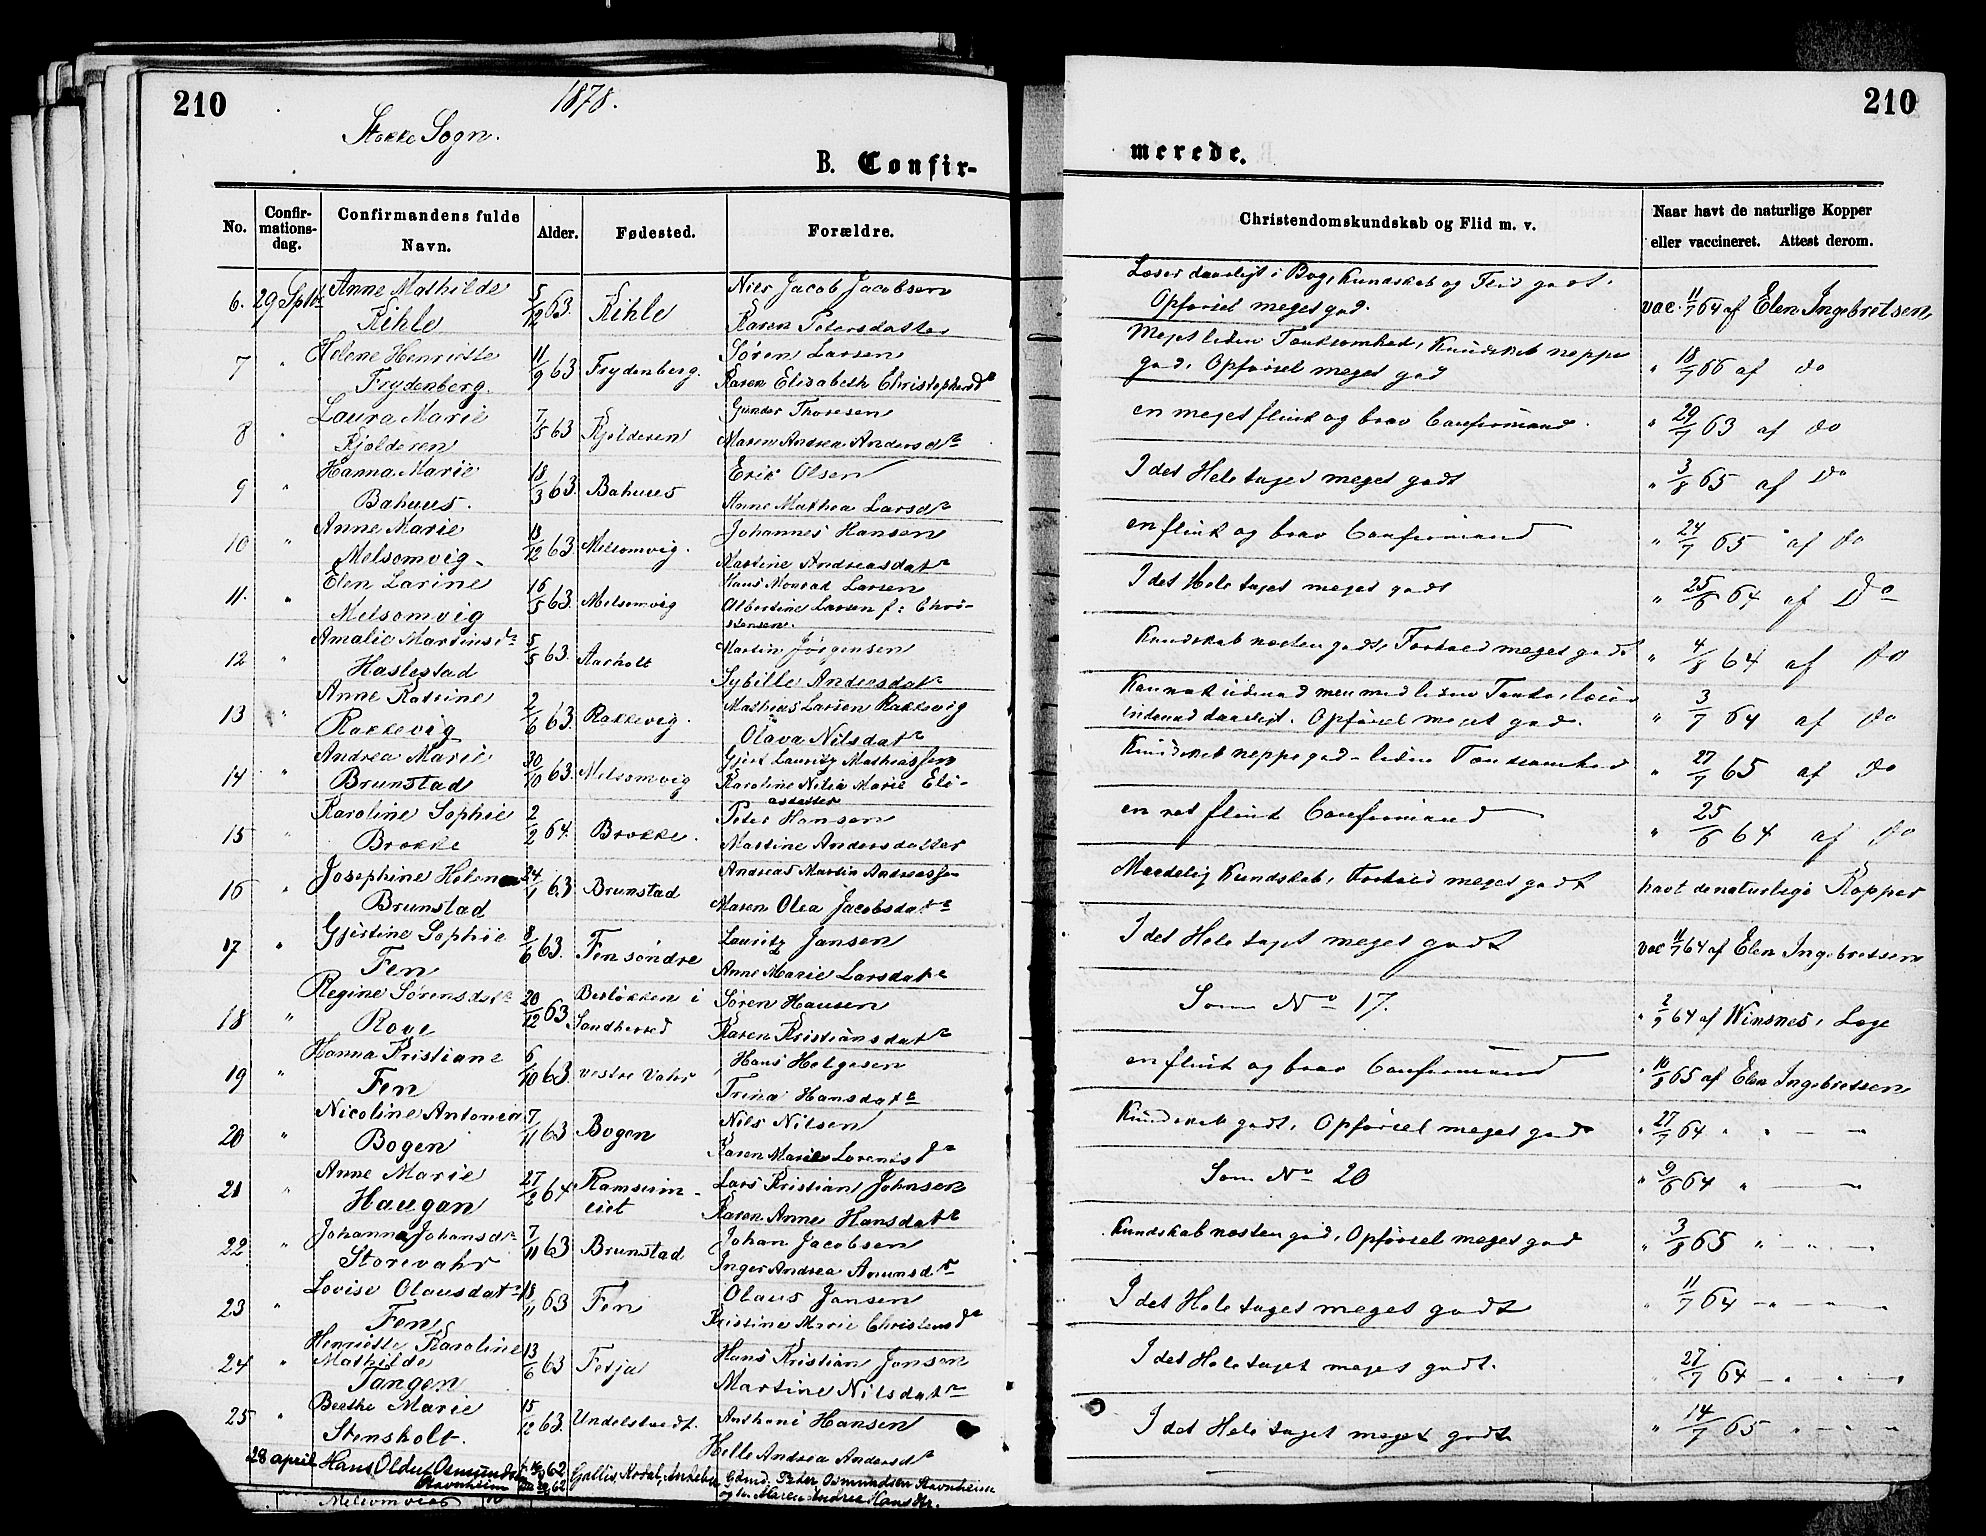 210
1878.
210
Stokke Sogn.
B. Confir-
merede.
No.
Confir-
mations-
dag.
Confirmandens fulde
Navn.
Alder.
Fødested.
Forældre.
Christendomskundskab og Flid m. v.
Naar havt de naturlige Kopper
eller vaccineret. Attest derom.
6. 29 Sptb. Anne Mathilde 5/12 63. Kihle Niels Jacob Jacobsen Læser daarligt i Bog, Kundskab og Flid godt. vac. 11/7 64 af Elen Ingebretsen
Kihle Karen Petersdatter Opførsel meget god.
7 " Helene Henriette 11/9 63 Frydenberg. Søren Larsen Meget liden Tænksomhed, Kundskab neppe " 18/7 66 af do
Frydenberg. Karen Elisabeth Christophersdr god, Opførsel meget god
8 " Laura Marie 7/5 63 Kjolderen Gunder Thoresen en meget flink og brav Confirmand. " 29/7 63 af do
Kjolderen Maren Andrea Andersdr
9 " Hanna Marie 18/3 63. Bahuus Erik Olsen I det Hele taget meget godt " 3/8 65 af Do
Bahuus. Anne Mathea Larsdr
10 " Anne Marie 13/12 63 Melsomvig. Johannes Hansen en flink og brav Confirmand " 24/7 65 af do
Melsomvig Martine Andreasdatr
11. " Elen Larine 16/5 63. Melsomvig Hans Monrad Larsen I det Hele taget meget godt " 25/6 64 af Do
Melsomvig Albertine Larsen f: Chri-
stensen.
12 " Amalie Martinsdr 5/5 63. Aarholt Martin Jørgensen Kundskab næsten godt, Forhold meget godt " 4/8 64 af do
Haslestad Sybille Andersdatr
13 " Anne Katrine 2/6 63. Rakkevig. Mathias Larsen Rakkevig " 3/7 64 af do
Rakkevig Olava Nilsdatr udenad daarligt. Opførsel meget god.
14 " Andrea Marie 30/10 63. Melsomvig Gjert Lauritz Mathiassen Kundskab neppe god - liden Tænksomhed " 27/7 65 af do
Brunstad Karoline Nilia Marie Eli-
asdatter
15 " Karoline Sophie 2/2 64. Brokke. Peter Hansen en ret flink Confirmand " 25/6 64 af do
Brokke Martine Andersdatter
16 " Josephine Helene 24/1 63 Brunstad Andreas Martin Andreassen Maadelig Kundskab, Forhold meget godt havt de naturlige Kopper
Brunstad Maren Olea Jacobsdatr
17 " Gjertine Sophie 8/6 63. Fen søndre Lauritz Jansen I det Hele taget meget godt vac 11/7 64 af Elen Ingebretsen
Fen Anne Marie Larsdatr
18 " Regine Sørensdatr 20/12 63 Besløkken i Søren Hansen Som No 17. " 2/9 64 af Winsnes, Læge
Rove Sandherred Karen Kristiansdatr
19 " Hanna Kristiane 6/10 63. vestre Vahr Hans Helgesen en flink og brav Confirmand " 10/8 65 af Elen Ingebretsen
Fen Trina Hansdatr
20 " Nicoline Antonia 7/11 63 Bogen Nils Nilsen Kundskab godt, Opførsel meget god " 27/7 64 " " — "
Bogen Karen Marie Lorentsdr
21 " Anne Marie 27/2 64 Ramsum- Lars Kristian Johnsen Som No 20 " 9/6 64 " — "
Haugan eiet Karen Anne Hansdatr
22 " Johanna Johansdr 7/11 63 Brunstad Johan Jacobsen Kundskab næsten god, Opførsel meget god " 3/8 65 " — " — "
Storevahr Inger Andrea Anunsdr
23 " Lovise Olausdatr 18/11 63 Fen Olaus Jansen I det Hele taget meget godt " 11/7 64 — " — " — "
Fen Kristine Marie Christensdr
24 " Henriette Karoline 13/6 63 Feeja Hans Kristian Jansen I det Hele taget meget godt. " 27/7 64 — " " "
Mathilde
Tangen Martine Nilsdatr
25 " Berthe Marie 15/12 63. Undelstvedt. Anthoni Hansen I det Hele taget meget godt " 14/7 65 " — " — "
Stensholt. Helle Andrea Andersdr
28 april Hans Oluf Osmundsen 62 Gallis, Kodal, Andebu Gdmd. Peder Osmundsen Stavnheim
Stavnheim 62 og Maren Andrea Hansdr.
Melsomvig